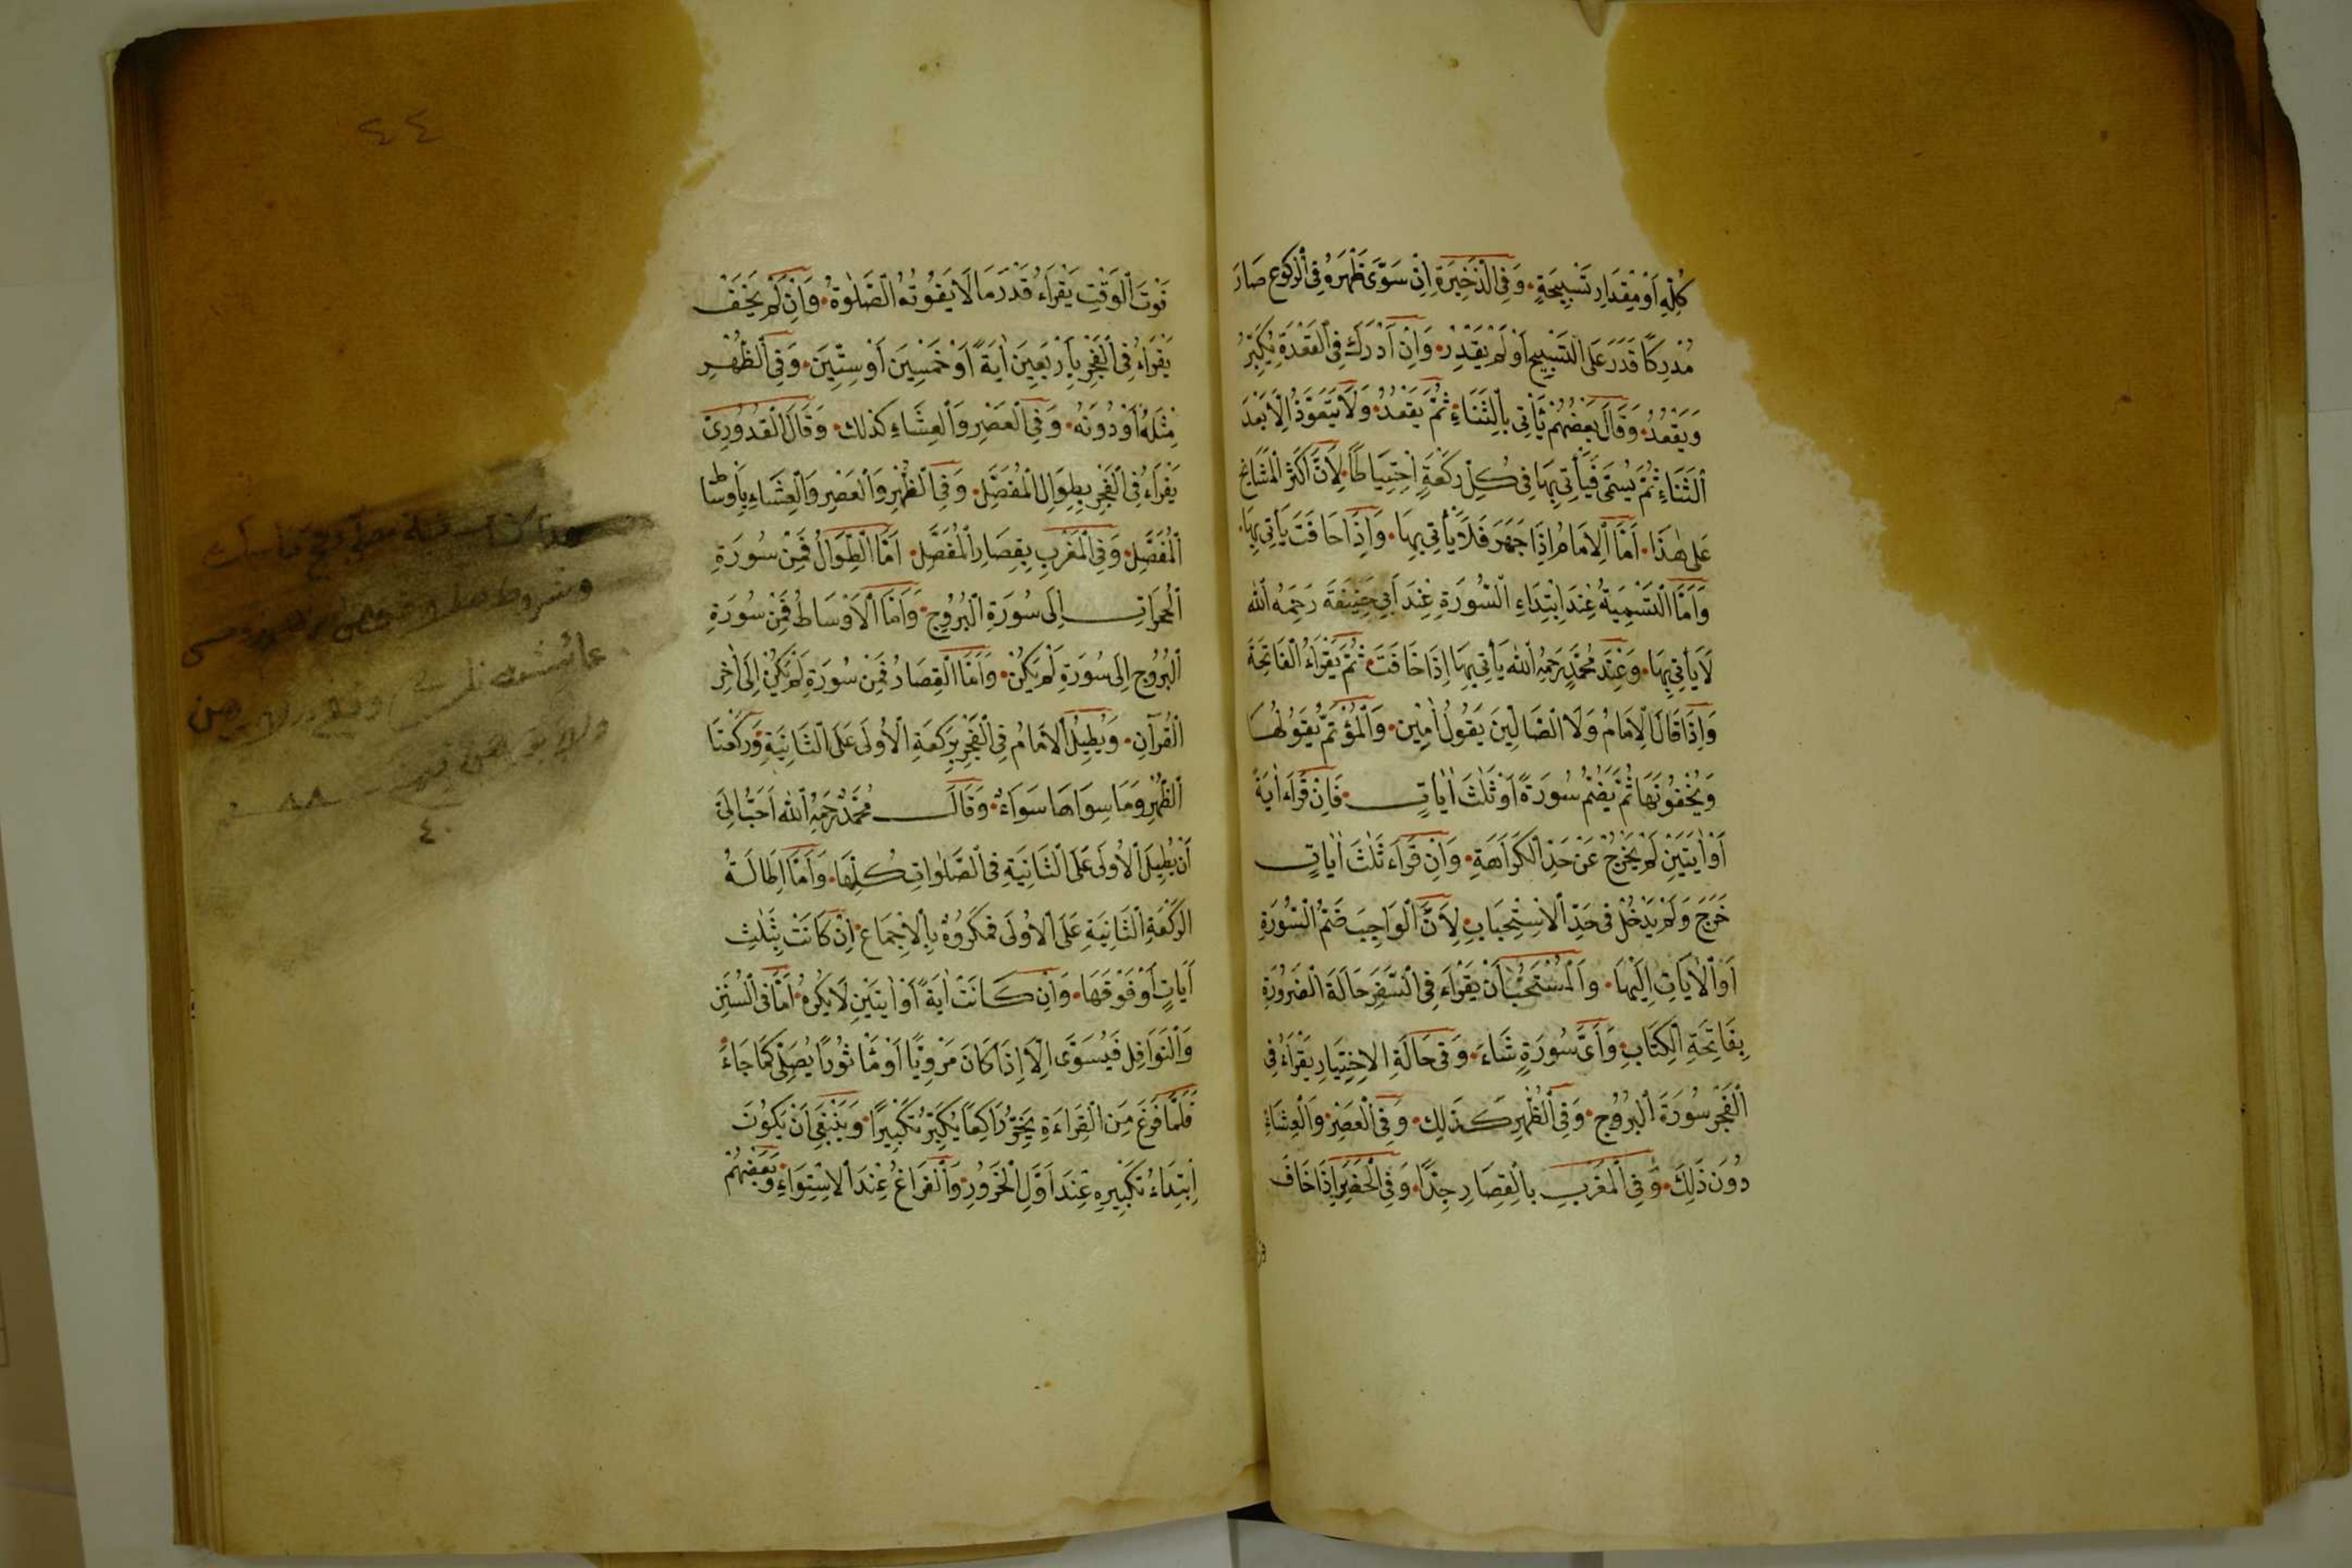 كُلِّهِ أَوْ مِقْدَارِ تَسْبِيحَةٍ وَفِي الذَّخِيرَةِ اِنْ سَوَّى ظَهْرَهُ فِي الرُّكُوعِ صَارَ
مُدْرِكًا قَدَرَ عَلَى التَّسْبِيحِ أَوْ لَمْ يَقْدِرْ وَاِنْ أَدْرَكَ فِي الْقَعْدَةِ يُكَبِّرُ
وَيَقْعُدُ وَقَالَ بَعْضُهُمْ يَأْتِي بِالثَّنَاءِ ثُمَّ يَقْعُدُ وَلَا يَتَعَوَّذُ اِلَّا بَعْدَ
الثَّنَاءِ ثُمَّ يُسَمِّي فَيَأْتِي بِهَا فِي كُلِّ رَكْعَةٍ اِحْتِيَاطًا لِاَنَّ أَكْثَرَ الْمَشَايِخِ
عَلَى هٰذَا أَمَّا الْاِمَامُ اِذَا جَهَرَ فَلَا يَأْتِي بِهَا وَاِذَا خَافَتَ يَأْتِي بِهَا
وَأَمَّا التَّسْمِيَةُ عِنْدَ اِبْتِدَاءِ السُّورَةِ عِنْدَ أَبِي حَنِيفَةَ رَحِمَهُ اللّٰه
لَا يَأْتِي بِهَا وَعِنْدَ مُحَمَّدٍ رَحِمَهُ اللّٰه يَأْتِي بِهَا اِذَا خَافَتَ ثُمَّ يَقْرَاءُ الْفَاتِحَةَ
وَاِذَا قَالَ الْاِمَامُ وَلَا الضَّالِّينَ يَقُولُ اٰمِينَ وَالْمُؤْتَمُّ يَقُولُهَا
وَيُخْفُونَهَا ثُمَّ يَضُمُّ سُورَةً اَوْ ثَلٰثَ اٰيَاتٍ فَاِنْ قَرَاَ اٰيَةً
أَوْ اٰيَتَيْنِ لَمْ يَخْرُجْ عَنْ حَدِّ الْكَرَاهَةِ وَاِنْ قَرَاَءَ ثَلٰثَ اٰيَاتٍ
خَرَجَ وَلَمْ يَدْخُلْ فِي حَدِّ الْاِسْتِحْبَابِ لِاَنَّ الْوَاجِبَ ضَمُّ السُّورَةِ
اَوِ الْاٰيَاتِ اِلَيْهَا وَالْمُسْتَحَبُّ اَنْ يَقْرَاَءَ فِي السَّفَرِ حَالَةَ الضَّرُورَةِ
بِفَاتِحَةِ الْكِتَابِ وَأَيَّ سُورَةٍ شَاءَ وَفِي حَالَةِ الاِخْتِيَارِ يَقْرَاءُ فِي
الْفَجْرِ سُورَةَ الْبُرُوجِ وَفِي الظُّهْرِ كَذٰلِكَ وَفِي الْعَصْرِ وَالْعِشَاءِ
دُونَ ذَلِكَ وَفِي الْمَغْرِبِ بِالْقِصَارِ جِدًّا وَفِي الْحَضَرِ اِذَا خَافَ
٤٤
فَوْتَ الْوَقْتِ يَقْرَاءُ قَدْرَ مَا لَا يَفُوتُهُ الصَّلٰوةُ وَاِنْ لَمْ يَخَفْ
يَقْرَاءُ فِي الْفَجْرِ بِأَرْبَعِينَ اٰيَةً أَوْ خَمْسِينَ أَوْ سِتِّينَ وَفِي الظُّهْرِ
مِثْلَهُ أَوْ دُونَهُ وَفِي الْعَصْرِ وَالْعِشَاءِ كَذٰلِكَ وَقَالَ الْقُدُورِيّ
يَقْرَاءُ فِي الْفَجْرِ بِطِوَالِ الْمُفَصَّلِ وَفِي الظُّهْرِ وَالْعَصْرِ وَالْعِشَاءِ بِأَوْسَاط
الْمُفَصَّلِ وَفِي الْمَغْرِبِ بِقِصَارِ الْمُفَصَّلِ أَمَّا الطِّوَالُ فَمِنْ سُورَةِ
الْحُجُرَاتِ اِلَى سُورَةِ الْبُرُوجِ وَأَمَّا الْأَوْسَاطُ فَمِنْ سُورَةِ
الْبُرُوجِ اِلَى سُورَةِ لَمْ يَكُنْ وَأَمَّا الْقِصَارُ فَمِنْ سُورَةِ لَمْ يَكُنْ اِلَى اٰخِرِ
الْقُرْآنِ وَيُطِيلُ الْاِمَامُ فِي الْفَجْرِ بِرَكْعَةِ الْأُولَى عَلَى الثَّانِيَةِ وَرَكْعَتَا
الظُّهْرِ وَمَا سِوَاهَا سَوَاءٌ وَقَالَ مُحَمَّدٌ رَحِمَهُ اللّٰه أَحَبُّ اِلَيَّ
أَنْ يُطِيلَ الْأُولَى عَلَى الثَّانِيَةِ فِي الصَّلَوَاتِ كُلِّهَا وَأَمَّا اِطَالَةُ
الرَّكْعَةِ الثَّانِيَةِ عَلَى الْأُولَى فَمَكْرُوهٌ بِالْاِجْمَاعِ اِنْ كَانَتْ بِثَلٰثِ
آيَاتٍ أَوْ فَوْقَهَا وَاِنْ كَانَتْ اٰيَةً أَوْ اٰيَتَيْنِ لَا يَكْرَهُ أَمَّا فِي السُّنَنِ
وَالنَّوَافِلِ فَيُسَوِّي اِلَّا اِذَا كَانَ مَرْوِيًّا اَوْ مَأْثُورًا يُصَلِّي كَمَا جَاءَ
فَلَمَّا فَرَغَ مِنَ الْقِرَاءَةِ يَخِرُّ رَاكِعًا يُكَبِّرُ تَكْبِيرًا وَيَنْبَغِي اَنْ يَكُونَ
اِبْتِدَاءُ تَكْبِيرِهِ عِنْدَ اَوَّلِ الْخُرُورِ وَالْفَرَاغُ عِنْدَ الْاِسْتِوَاءِ وَبَعْضُهُمْ